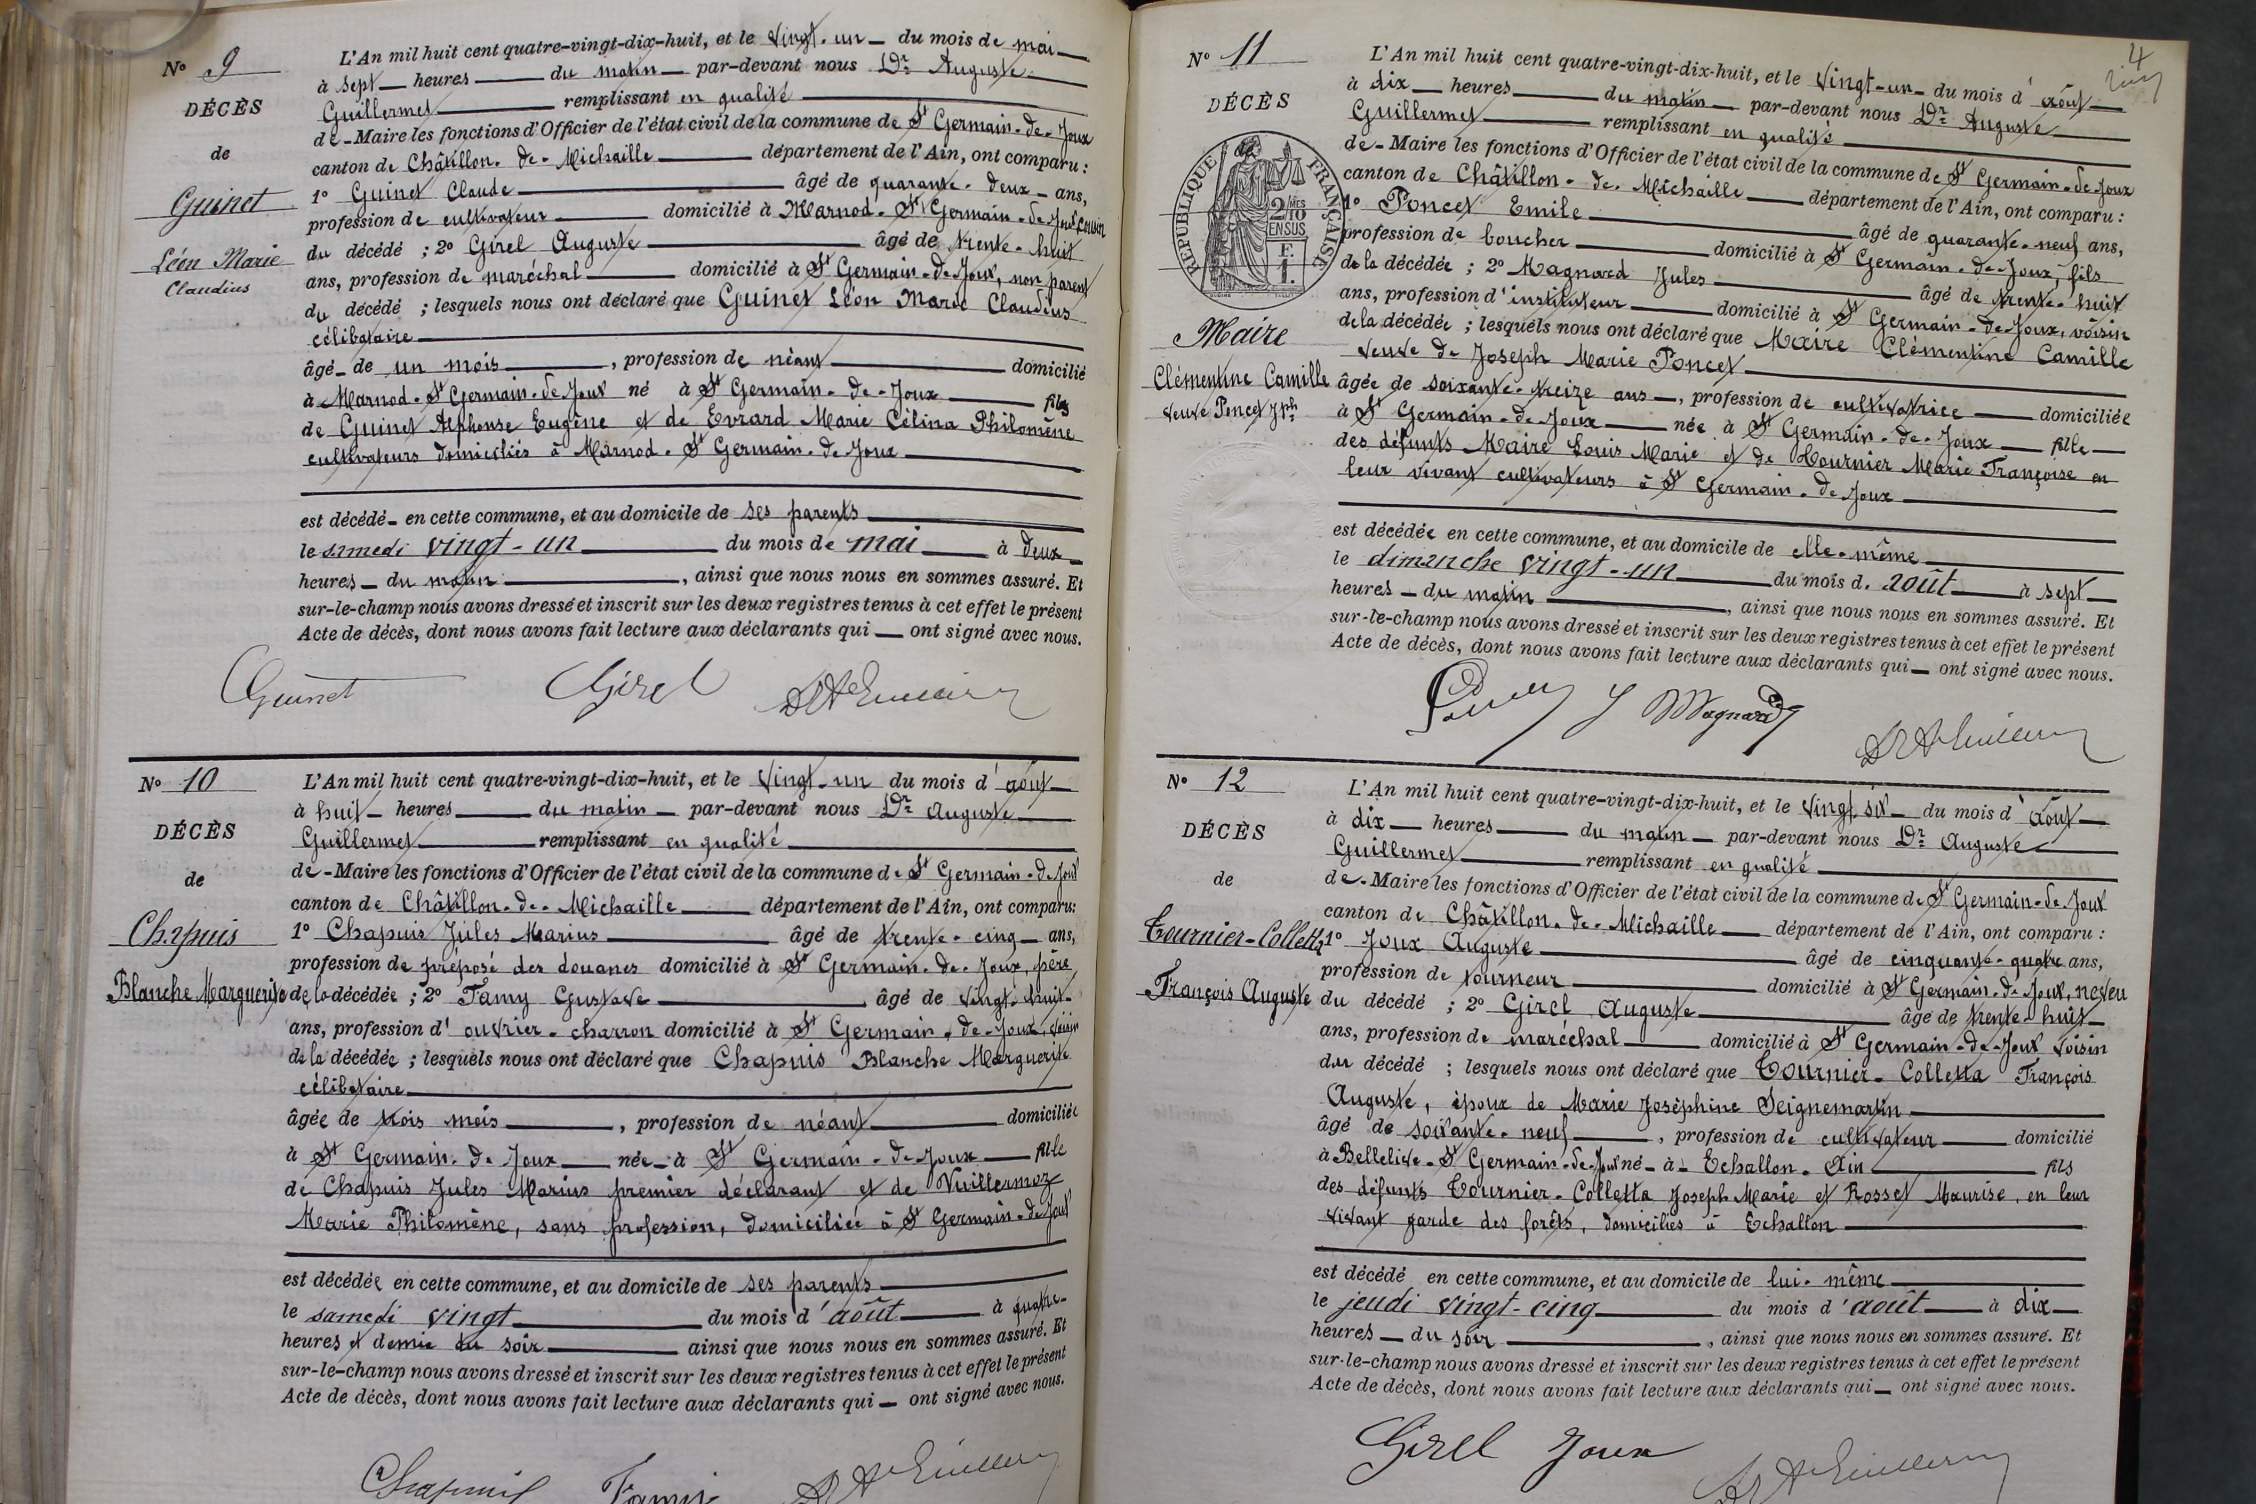 N° 9
DÉCÈS
de
Guinet
Léon Marie
Claudius
L'An mil huit cent quatre-vingt-dix-huit, et le vingt-un du mois de mai
à sept heures du matin par-devant nous Dr Auguste
Guillermet remplissant en qualité
de Maire les fonctions d'Officier de l'état civil de la commune de St Germain-de-Joux
canton de Châtillon-de-Michaille département de l'Ain, ont comparu :
1° Guinet Claude âgé de quarante-deux ans,
profession de cultivateur domicilié à Marnod-St Germain-de-Joux cousin
du décédé ; 2° Girel Auguste âgé de trente-huit
ans, profession de maréchal domicilié à St Germain-de-Joux, non parent
du décédé ; lesquels nous ont déclaré que Guinet Léon Marie Claudius
célibataire
âgé de un mois, profession de néant domicilié
à Marnod-St Germain-de-Joux né à St Germain-de-Joux fils
de Guinet Alphonse Eugène et de Evrard Marie Célina Philomène
cultivateurs domiciliés à Marnod-St Germain-de-Joux
est décédé en cette commune, et au domicile de ses parents
le samedi vingt-un du mois de mai à deux
heures du matin, ainsi que nous nous en sommes assuré. Et
sur-le-champ nous avons dressé et inscrit sur les deux registres tenus à cet effet le présent
Acte de décès, dont nous avons fait lecture aux déclarants qui ont signé avec nous.
Guinet Girel
N° 10
DÉCÈS
de
Chapuis
Blanche Marguerite
L'An mil huit cent quatre-vingt-dix-huit, et le vingt-un du mois d'août
à huit heures du matin par-devant nous Dr Auguste
Guillermet remplissant en qualité
de Maire les fonctions d'Officier de l'état civil de la commune de St Germain-de-Joux
canton de Châtillon-de-Michaille département de l'Ain, ont comparu :
1° Chapuis Jules Marius âgé de trente-cinq ans,
profession de préposé des douanes domicilié à St Germain-de-Joux, père
de la décédée ; 2° Famy Gustave âgé de vingt-huit
ans, profession d'ouvrier-charron domicilié à St Germain-de-Joux, voisin
de la décédée ; lesquels nous ont déclaré que Chapuis Blanche Marguerite
célibataire
âgée de trois mois, profession de néant domiciliée
à St Germain-de-Joux née à St Germain-de-Joux fille
de Chapuis Jules Marius premier déclarant et de Vuillermoz
Marie Philomène, sans profession, domiciliée à St Germain-de-Joux
est décédée en cette commune, et au domicile de ses parents
le samedi vingt du mois d'août à quatre
heures et demie du soir ainsi que nous nous en sommes assuré. Et
sur-le-champ nous avons dressé et inscrit sur les deux registres tenus à cet effet le présent
Acte de décès, dont nous avons fait lecture aux déclarants qui ont signé avec nous.
Chapuis Famy
4
N° 11
DÉCÈS
RÉPUBLIQUE FRANÇAISE
2/10 MES
EN SUS
F.
1.
Maire
Clémentine Camille
veuve Poncet Jph
L'An mil huit cent quatre-vingt-dix-huit, et le vingt-un du mois d'août
à dix heures du matin par-devant nous Dr Auguste
Guillermet remplissant en qualité
de Maire les fonctions d'Officier de l'état civil de la commune de St Germain-de-Joux
canton de Châtillon-de-Michaille département de l'Ain, ont comparu :
1° Poncet Emile âgé de quarante-neuf ans,
profession de boucher domicilié à St Germain-de-Joux, fils
de la décédée ; 2° Magnard Jules âgé de trente-huit
ans, profession d'instituteur domicilié à St Germain-de-Joux, voisin
de la décédée ; lesquels nous ont déclaré que Maire Clémentine Camille
veuve de Joseph Marie Poncet
âgée de soixante-treize ans, profession de cultivatrice domiciliée
à St Germain-de-Joux née à St Germain-de-Joux fille
des défunts Maire Louis Marie et de Tournier Marie Françoise en
leur vivant cultivateurs à St Germain-de-Joux
est décédée en cette commune, et au domicile de elle-même
le dimanche vingt-un du mois d'août à sept
heures du matin, ainsi que nous nous en sommes assuré. Et
sur-le-champ nous avons dressé et inscrit sur les deux registres tenus à cet effet le présent
Acte de décès, dont nous avons fait lecture aux déclarants qui ont signé avec nous.
J Magnard
N° 12
DÉCÈS
de
Tournier-Colletta
François Auguste
L'An mil huit cent quatre-vingt-dix-huit, et le vingt six du mois d'août
à dix heures du matin par-devant nous Dr Auguste
Guillermet remplissant en qualité
de Maire les fonctions d'Officier de l'état civil de la commune de St Germain-de-Joux
canton de Châtillon-de-Michaille département de l'Ain, ont comparu :
1° Joux Auguste âgé de cinquante-quatre ans,
profession de tourneur domicilié à St Germain-de-Joux, neveu
du décédé ; 2° Girel Auguste âgé de trente-huit
ans, profession de maréchal domicilié à St Germain-de-Joux voisin
du décédé ; lesquels nous ont déclaré que Tournier-Colletta François
Auguste, époux de Marie Joséphine Seignemartin
âgé de soixante-neuf, profession de cultivateur domicilié
à Bellelive-St Germain-de-Joux né à Echallon-Ain fils
des défunts Tournier-Colletta Joseph Marie et Rosset Maurise, en leur
vivant garde des forêts, domiciliés à Echallon
est décédé en cette commune, et au domicile de lui-même
le jeudi vingt-cinq du mois d'août à dix
heures du soir, ainsi que nous nous en sommes assuré. Et
sur-le-champ nous avons dressé et inscrit sur les deux registres tenus à cet effet le présent
Acte de décès, dont nous avons fait lecture aux déclarants qui ont signé avec nous.
Girel Joux